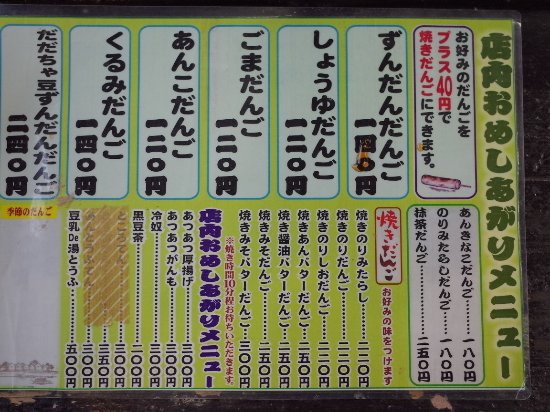 店内おめしあがりメニュー
お好みのだんごを
プラス40円で
焼きだんごにできます。
ずんだんだんご 一四〇円
しょうゆだんご 一二〇円
ごまだんご 一二〇円
あんこだんご 一二〇円
くるみだんご 一四〇円
だだちゃ豆ずんだんだんご 二四〇円
季節のだんご
あんきなこだんご……一八〇円
のりみたらしだんご……一八〇円
抹茶だんご……二五〇円
焼きだんご
お好みの味をつけます
焼きのりみたらし……二二〇円
焼きのりだんご……二二〇円
焼きのりしおだんご……二二〇円
焼きあんバターだんご……二五〇円
焼き醤油バターだんご……二二〇円
焼きみそだんご……二二〇円
焼きみそバターだんご……二五〇円
※焼き時間10分程お待ちいただきます。
店内おめしあがりメニュー
あつあつ厚揚げ
あつあつがんも
冷奴
黒豆茶
豆乳De湯とうふ……五〇〇円